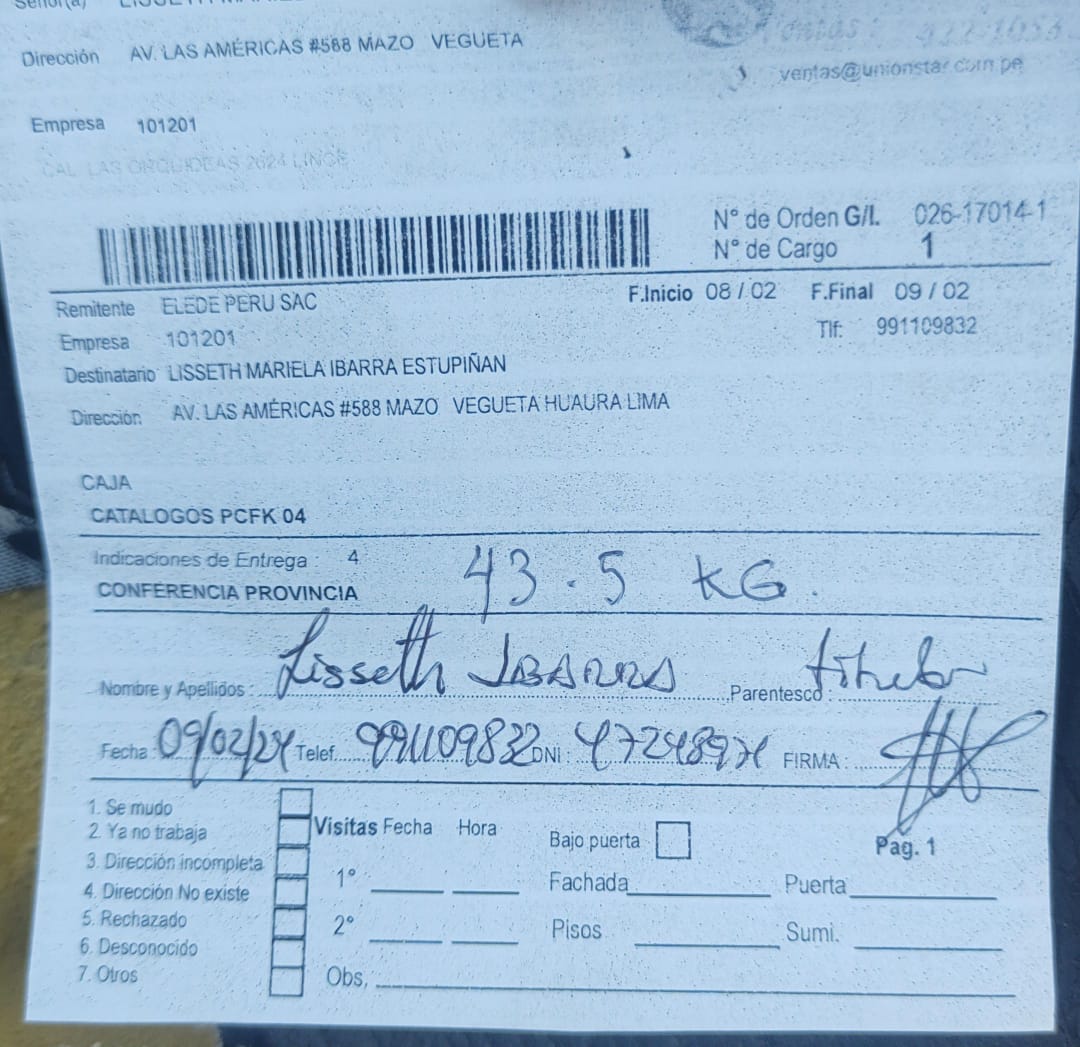 Señor(a)
Dirección AV. LAS AMÉRICAS #588 MAZO VEGUETA
ventas@unionstar.com.pe
Empresa 101201
CAL LAS ORQUIDEAS 2624 LINCE
N° de Orden G/I. 026-17014-1
N° de Cargo 1
Remitente ELEDE PERU SAC F.Inicio 08 / 02 F.Final 09 / 02
Empresa 101201 Tlf: 991109832
Destinatario LISSETH MARIELA IBARRA ESTUPIÑAN
Dirección AV. LAS AMÉRICAS #588 MAZO VEGUETA HUAURA LIMA
CAJA
CATALOGOS PCFK 04
Indicaciones de Entrega : 4 43.5 KG.
CONFERENCIA PROVINCIA
Nombre y Apellidos : Lisseth IBARRA Parentesco : titular
Fecha 09/02/24 Telef. 991109832 DNI : 47248974 FIRMA :
1. Se mudo
2. Ya no trabaja Visitas Fecha Hora Bajo puerta Pag. 1
3. Dirección incompleta
4. Dirección No existe 1° Fachada Puerta
5. Rechazado 2° Pisos Sumi.
6. Desconocido
7. Otros Obs,